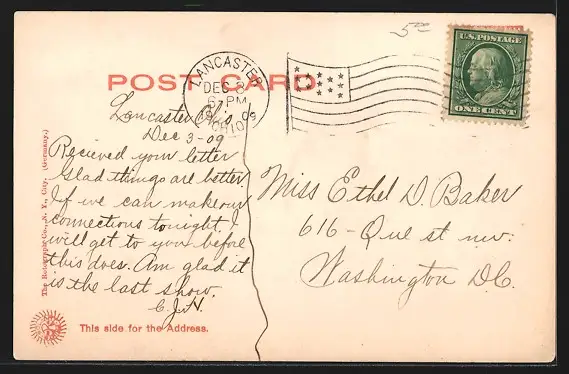 500
U.S. POSTAGE
ONE CENT
POST CARD
LANCASTER
DEC 3
6 PM
09
OHIO
Lancaster O.
Dec 3-09
Recieved your letter
Glad things are better
If we can make our
connections tonight, I
will get to you before
this does. Am glad it
is the last show.
C.J.H.
Miss Ethel D. Baker
616 - Que st nw.
Washington D.C.
The Rotograph Co., N. Y. City. (Germany.)
This side for the Address.